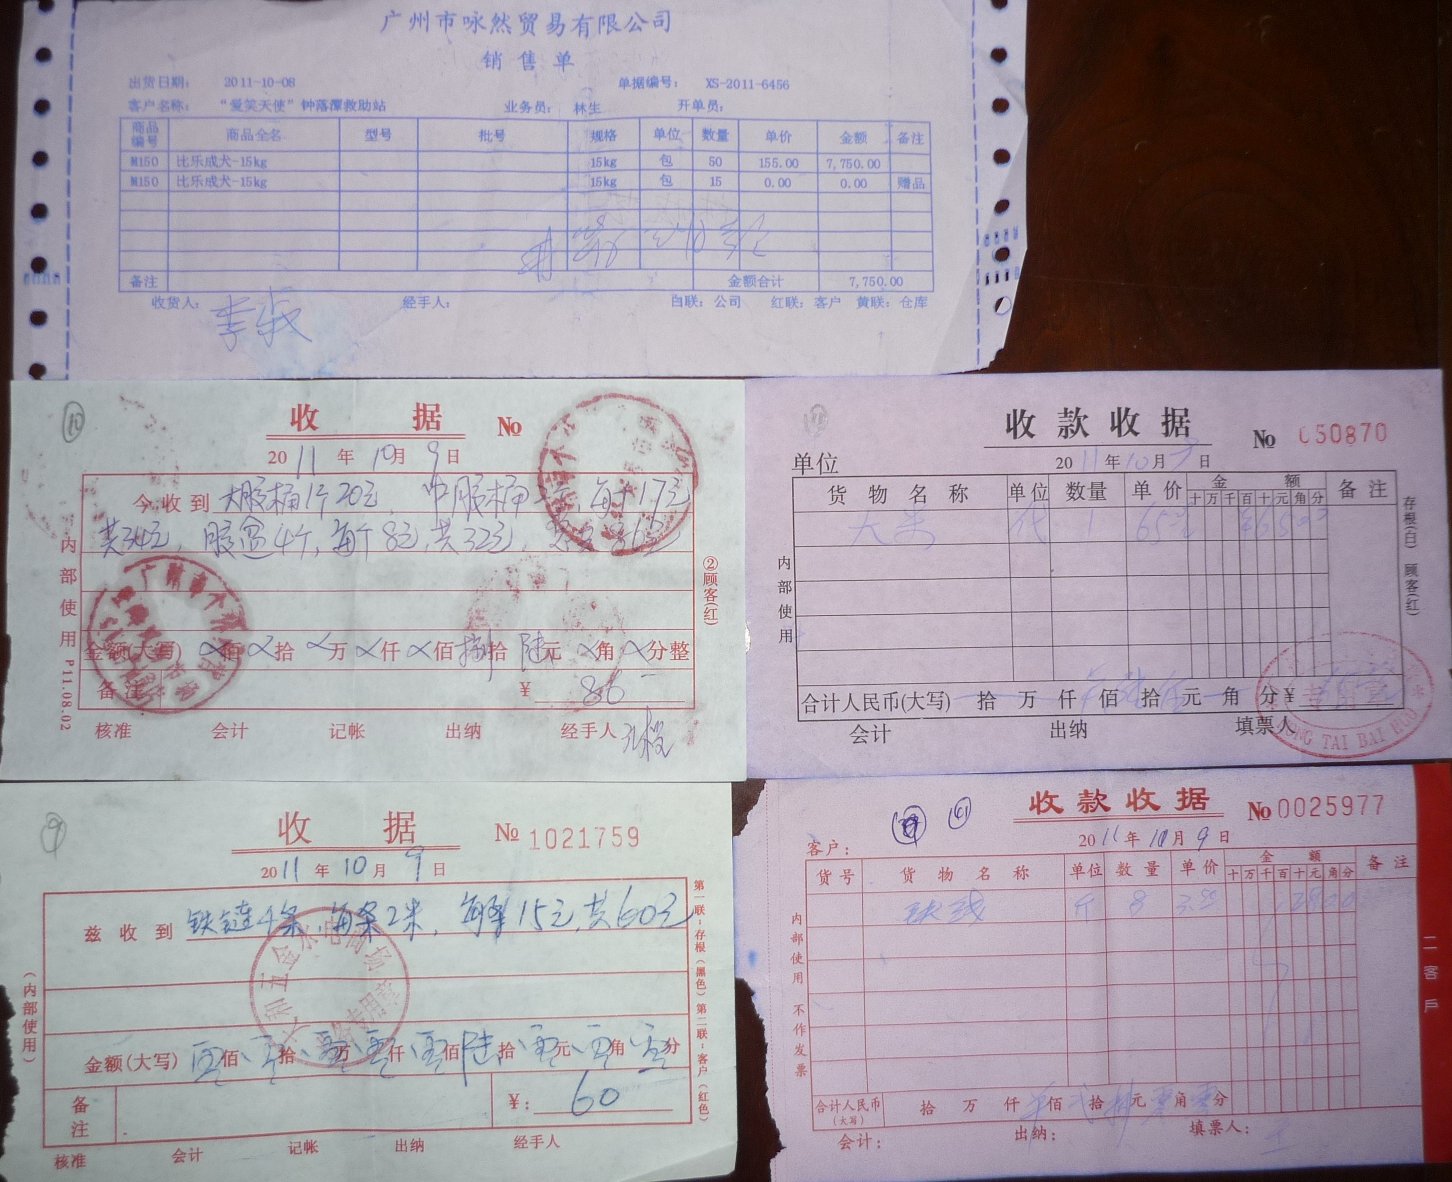 广州市咏然贸易有限公司
销售单
出货日期： 2011-10-08 单据编号： XS-2011-6456
客户名称： “爱笑天使”钟落潭救助站 业务员： 林生 开单员：
商品编号 商品全名 型号 批号 规格 单位 数量 单价 金额 备注
M150 比乐成犬-15kg 15kg 包 50 155.00 7,750.00
M150 比乐成犬-15kg 15kg 包 15 0.00 0.00 赠品
备注 金额合计 7,750.00
收货人： 经手人： 白联：公司 红联：客户 黄联：仓库
10
收 据 No
2011年10月9日
今收到 大胶桶1个20元 中胶桶 个，每个17元
共34元，胶盆4个，每个8元，共32元，
金额(大写) 佰 拾 万 仟 佰 捌拾 陆元 角 分整
备注 ¥ 86
核准 会计 记帐 出纳 经手人
内部使用 P11.08.02
②顾客(红)
收款收据 No 050870
单位 2011年10月 日
货物名称 单位 数量 单价 金额 备注
十万千百十元角分
大米 1 65
合计人民币(大写) 拾 万 仟 佰 拾 元 角 分 ¥
会计 出纳 填票人
内部使用
存根(白) 顾客(红)
TAI BAI
9
收 据 No 1021759
2011年10月9日
兹收到 铁链4条，每条2米，每条15元，共60元
金额(大写) 零佰 零拾 零万 零仟 零佰 陆拾 零元 零角 零分
备注 ¥： 60
核准 会计 记帐 出纳 经手人
(内部使用)
第一联：存根(黑色) 第二联：客户(红色)
五金水电商场
收款收据 No 0025977
客户： 2011年10月9日
货号 货物名称 单位 数量 单价 金额 备注
十万千百十元角分
铁线 斤 8 3.50 2800
合计人民币(大写) 拾 万 仟 佰 拾 元 角 分
会计： 出纳： 填票人：
内部使用 不作发票
二客户